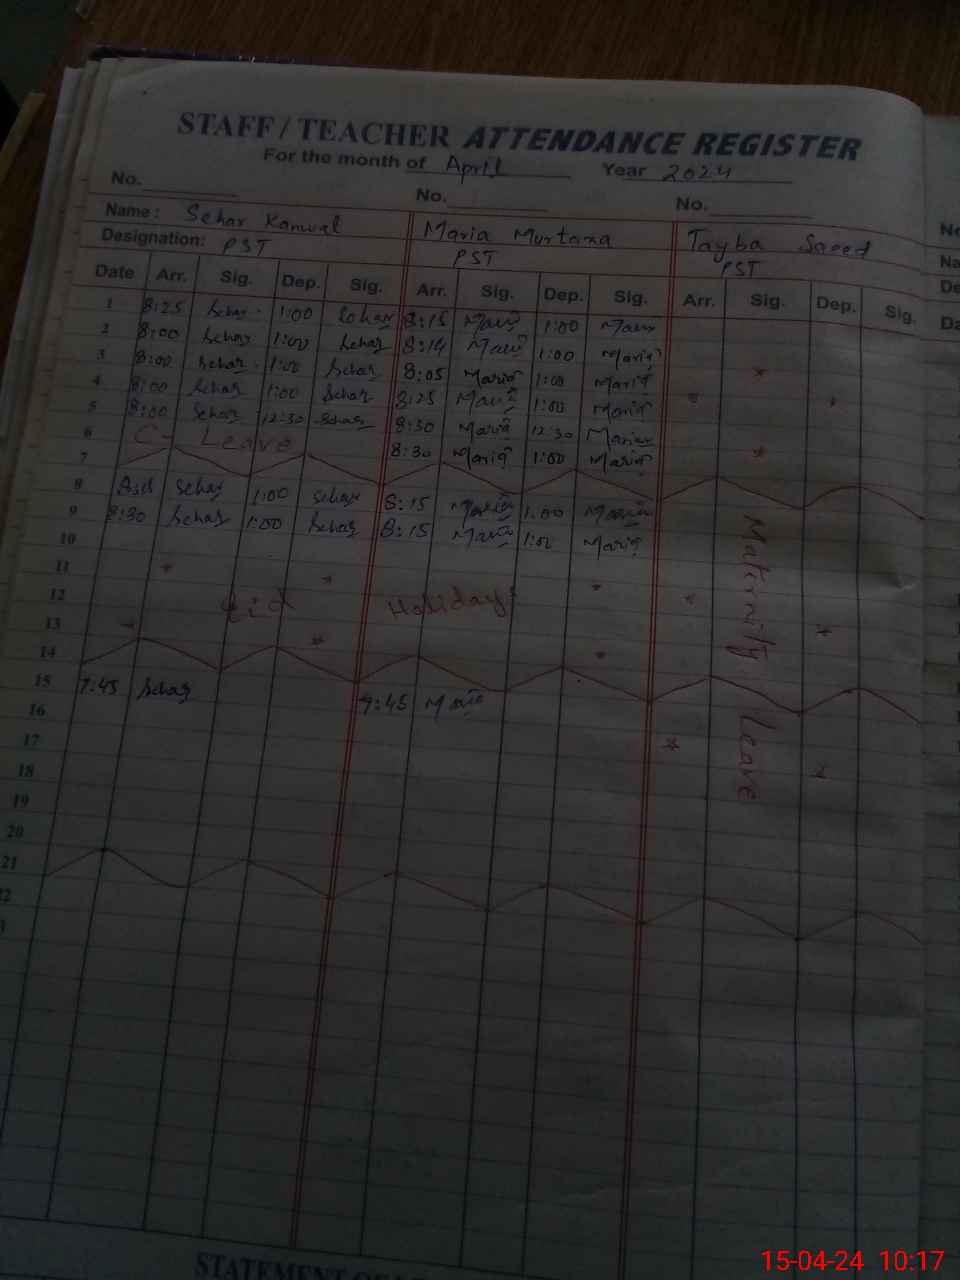 STAFF / TEACHER ATTENDANCE REGISTER
For the month of April Year 2024
No. No. No.
Name: Sehar Kanwal Maria Murtaza Tayba Saeed
Designation: PST PST PST
Date Arr. Sig. Dep. Sig. Arr. Sig. Dep. Sig. Arr. Sig. Dep. Sig.
1 8:25 Sehar 1:00 Sehar 8:15 Maria 1:00 Maria
2 8:00 Sehar 1:00 Sehar 8:14 Maria 1:00 Maria
3 8:00 Sehar 1:00 Sehar 8:05 Maria 1:00 Maria
4 8:00 Sehar 1:00 Sehar 8:25 Maria 1:00 Maria
5 8:00 Sehar 12:30 Sehar 8:30 Maria 12:30 Maria
6 C- Leave 8:30 Maria 1:00 Maria
7
8 Sehar 1:00 Sehar 8:15 Maria 1:00 Maria
9 8:30 Sehar 1:00 Sehar 8:15 Maria 1:00 Maria
10
11
12 Eid Holidays
13
14
15 7:45 Sehar 7:45 Maria
16
17
18
19
20
21
22
3
Maternity Leave
STATEMENT OF
15-04-24 10:17